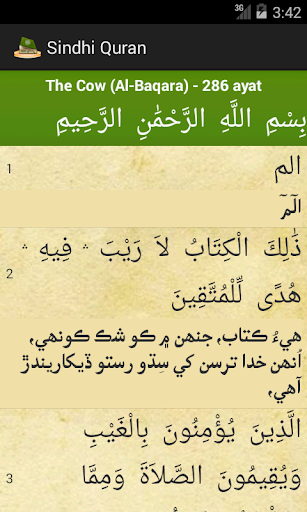 3G 3:42
Sindhi Quran
The Cow (Al-Baqara) - 286 ayat
بِسْمِ اللَّهِ الرَّحْمَٰنِ الرَّحِيمِ
1 الم
الٓمٓ
ذَٰلِكَ الْكِتَابُ لاَ رَيْبَ ۛ فِيهِ ۛ
2 هُدًى لِّلْمُتَّقِينَ
هيءُ ڪتاب، جنهن ۾ ڪو شڪ ڪونهي،
اُنهن خدا ترسن کي سِڌو رستو ڏيکاريندڙ
آهي،
الَّذِينَ يُؤْمِنُونَ بِالْغَيْبِ
3 وَيُقِيمُونَ الصَّلاَةَ وَمِمَّا